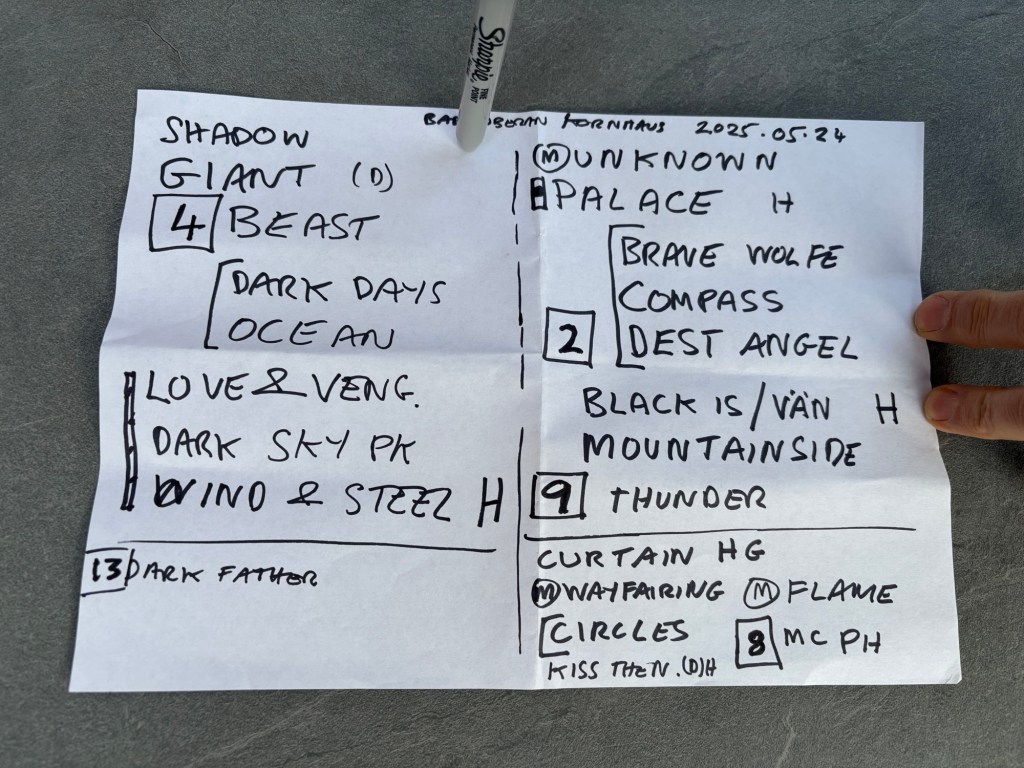 Sharpie
FINE
POINT
KORNHAUS 2025.05.24
SHADOW
GIANT (D)
4 BEAST
DARK DAYS
OCEAN
LOVE & VENG.
DARK SKY PK
WIND & STEEL H
13 DARK FATHER
M UNKNOWN
PALACE H
BRAVE WOLFE
COMPASS
2 DEST ANGEL
BLACK IS/VÄN H
MOUNTAINSIDE
9 THUNDER
CURTAIN HG
M WAYFAIRING M FLAME
CIRCLES 8 MC PH
KISS THEN.(D)H